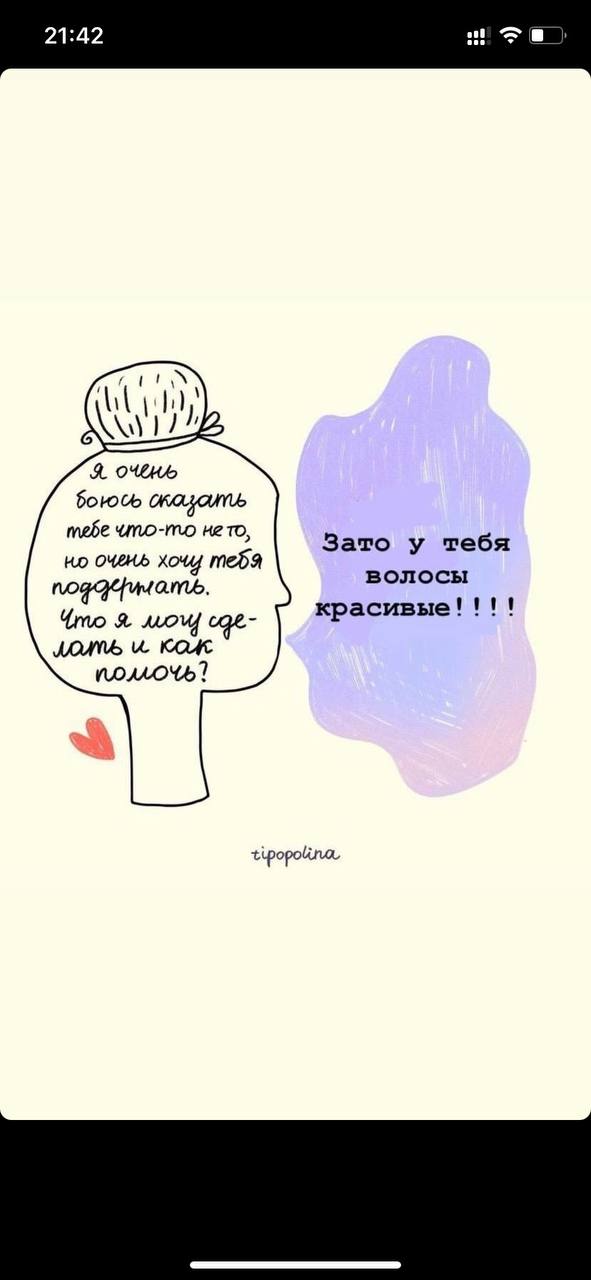 21:42
Я очень
боюсь сказать
тебе что-то не то,
но очень хочу тебя
поддержать.
Что я могу сде-
лать и как
помочь?
Зато у тебя
волосы
красивые!!!!
tipopolina